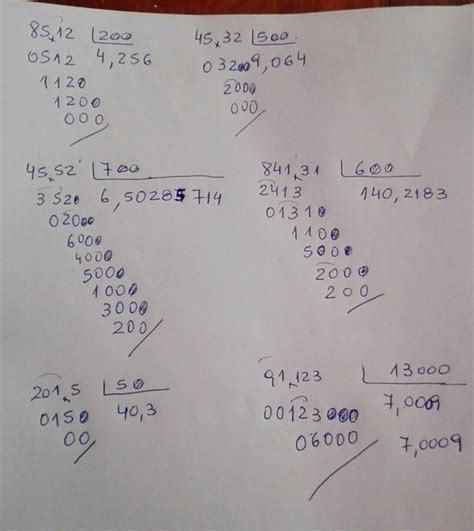 85,12 200
0512 4,256
1120
1200
000
45,32 500
03200 9,064
2000
000
45,52 700
3520 6,50285714
02000
6000
4000
5000
1000
3000
200
841,31 600
2413 140,2183
01310
1100
5000
2000
200
201,5 50
0150 40,3
00
91,123 13000
00123000 7,0009
06000 7,0009